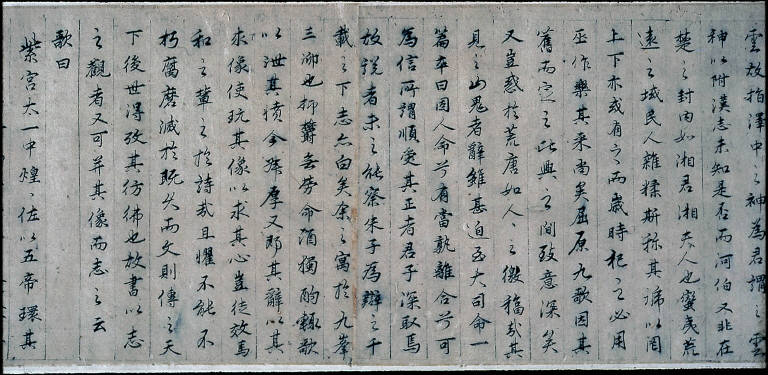 雲故指澤中之神為君謂之雲
神以附漢志未知是否而河伯又非在
楚之封内如湘君湘夫人也蠻夷荒
遠之域民人雜糅斯稱其號以罔
上下亦或有之而歲時祀之必用
巫作樂其来尚矣屈原九歌因其
舊而定之比興之間致意深矣
又豈惑於荒唐如人之徼福哉其
見之山鬼者辭雖甚迫至大司命一
篇卒曰固人命兮有當孰離合兮可
為信所謂順受其正者君子深取焉
故説者未之能察朱子為辯之千
載之下志亦白矣余之寓於九峯
三泖也抑鬱無勞命酒獨酌輒歌
以泄其憤今舜摩又即其辭以其
求像使玩其像以求其心豈徒效馬
和之輩之於詩哉且懼不能不
朽腐磨滅於既久而文則傳之天
下後世得攷其彷彿也故書以志
之觀者又可并其像而志之云
歌曰
紫宫太一中煌煌佐以五帝環其